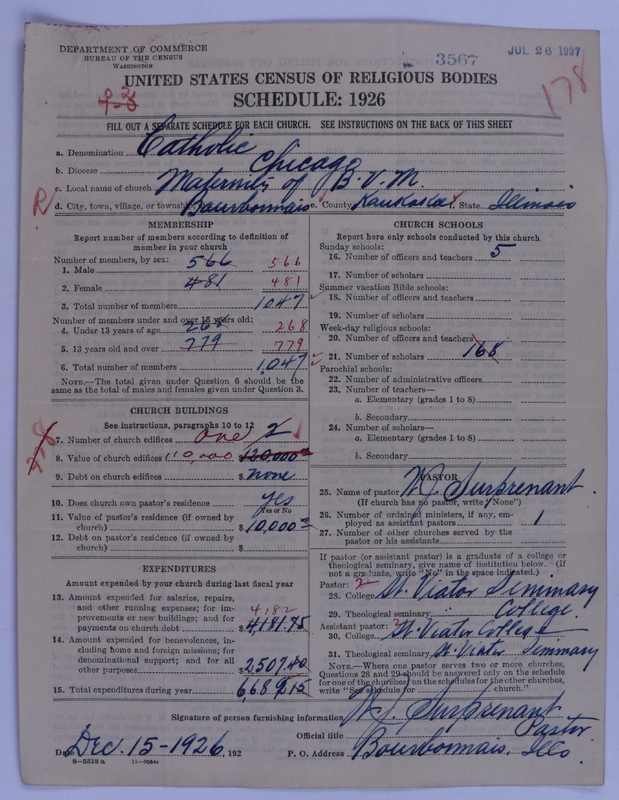 DEPARTMENT OF COMMERCE
BUREAU OF THE CENSUS
WASHINGTON
3567
JUL 26 1927
UNITED STATES CENSUS OF RELIGIOUS BODIES
SCHEDULE: 1926
178
FILL OUT A SEPARATE SCHEDULE FOR EACH CHURCH. SEE INSTRUCTIONS ON THE BACK OF THIS SHEET
a. Denomination Catholic
b. Diocese Chicago
c. Local name of church Maternity of B.V.M.
R
d. City, town, village, or township Bourbonnais e. County Kankakee f. State Illinois
MEMBERSHIP
Report number of members according to definition of
member in your church
Number of members, by sex:
1. Male 566 566
2. Female 481 481
3. Total number of members 1047
Number of members under and over 13 years old:
4. Under 13 years of age 268 268
5. 13 years old and over 779 779
6. Total number of members 1,047
NOTE.—The total given under Question 6 should be the
same as the total of males and females given under Question 3.
CHURCH BUILDINGS
See instructions, paragraphs 10 to 12
7. Number of church edifices one 2
8. Value of church edifices 110,000 $120,000
9. Debt on church edifices $ none
10. Does church own pastor's residence yes
Yes or No
11. Value of pastor's residence (if owned by
church) $10,000
12. Debt on pastor's residence (if owned by
church) $
EXPENDITURES
Amount expended by your church during last fiscal year
13. Amount expended for salaries, repairs,
and other running expenses; for im-
provements or new buildings; and for
payments on church debt 4182 $4,181.75
14. Amount expended for benevolences, in-
cluding home and foreign missions; for
denominational support; and for all
other purposes 2,507.40
15. Total expenditures during year 6,689.15
CHURCH SCHOOLS
Report here only schools conducted by this church
Sunday schools:
16. Number of officers and teachers 5
17. Number of scholars
Summer vacation Bible schools:
18. Number of officers and teachers
19. Number of scholars
Week-day religious schools:
20. Number of officers and teachers
21. Number of scholars 168
Parochial schools:
22. Number of administrative officers
23. Number of teachers—
a. Elementary (grades 1 to 8)
b. Secondary
24. Number of scholars—
a. Elementary (grades 1 to 8)
b. Secondary
PASTOR
25. Name of pastor W.J. Surprenant
(If church has no pastor, write "None")
26. Number of ordained ministers, if any, em-
ployed as assistant pastors 1
27. Number of other churches served by the
pastor or his assistants
If pastor (or assistant pastor) is a graduate of a college or
theological seminary, give name of institution below. (If
not a graduate, write "No" in the space indicated.)
Pastor: 2
28. College St. Viator Seminary
29. Theological seminary " College
Assistant pastor: 2
30. College St. Viator College
31. Theological seminary St. Viator Seminary
NOTE.—Where one pastor serves two or more churches,
Questions 28 and 29 should be answered only on the schedule
for one of the churches; on the schedules for the other churches,
write "See schedule for church."
Signature of person furnishing information W.J. Surprenant
Official title Pastor
Date Dec. 15-1926, 192
P. O. Address Bourbonnais, Ills.
8-5518 a